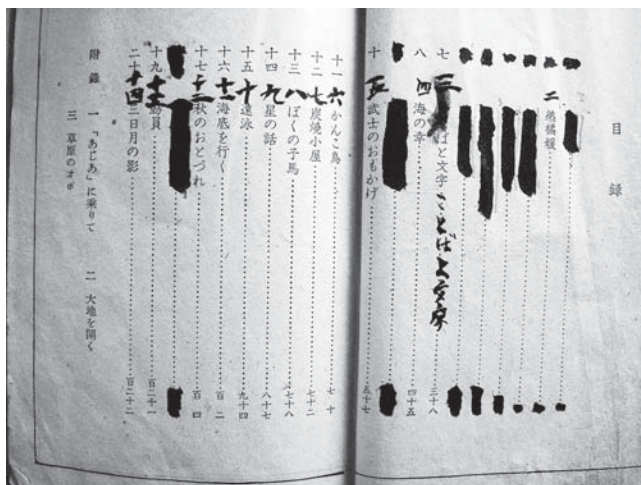 目錄
二 弟橘媛
七 三 ばと文字 ことばと文字 三十八
八 四 海の幸 四十五
十 五 武士のおもかげ 五十七
十一 六 かんこ鳥 七十
十二 七 炭燒小屋 七十二
十三 八 ぼくの子馬 七十八
十四 九 星の話 八十七
十五 十 遠泳 九十四
十六 十一 海底を行く 百二
十七 十二 秋のおとづれ 百四
十九 十三 員 百二十一
二十 十四 三日月の影 百二十二
附錄 一 「あじあ」に乗りて 二 大地を開く
三 草原のオボ